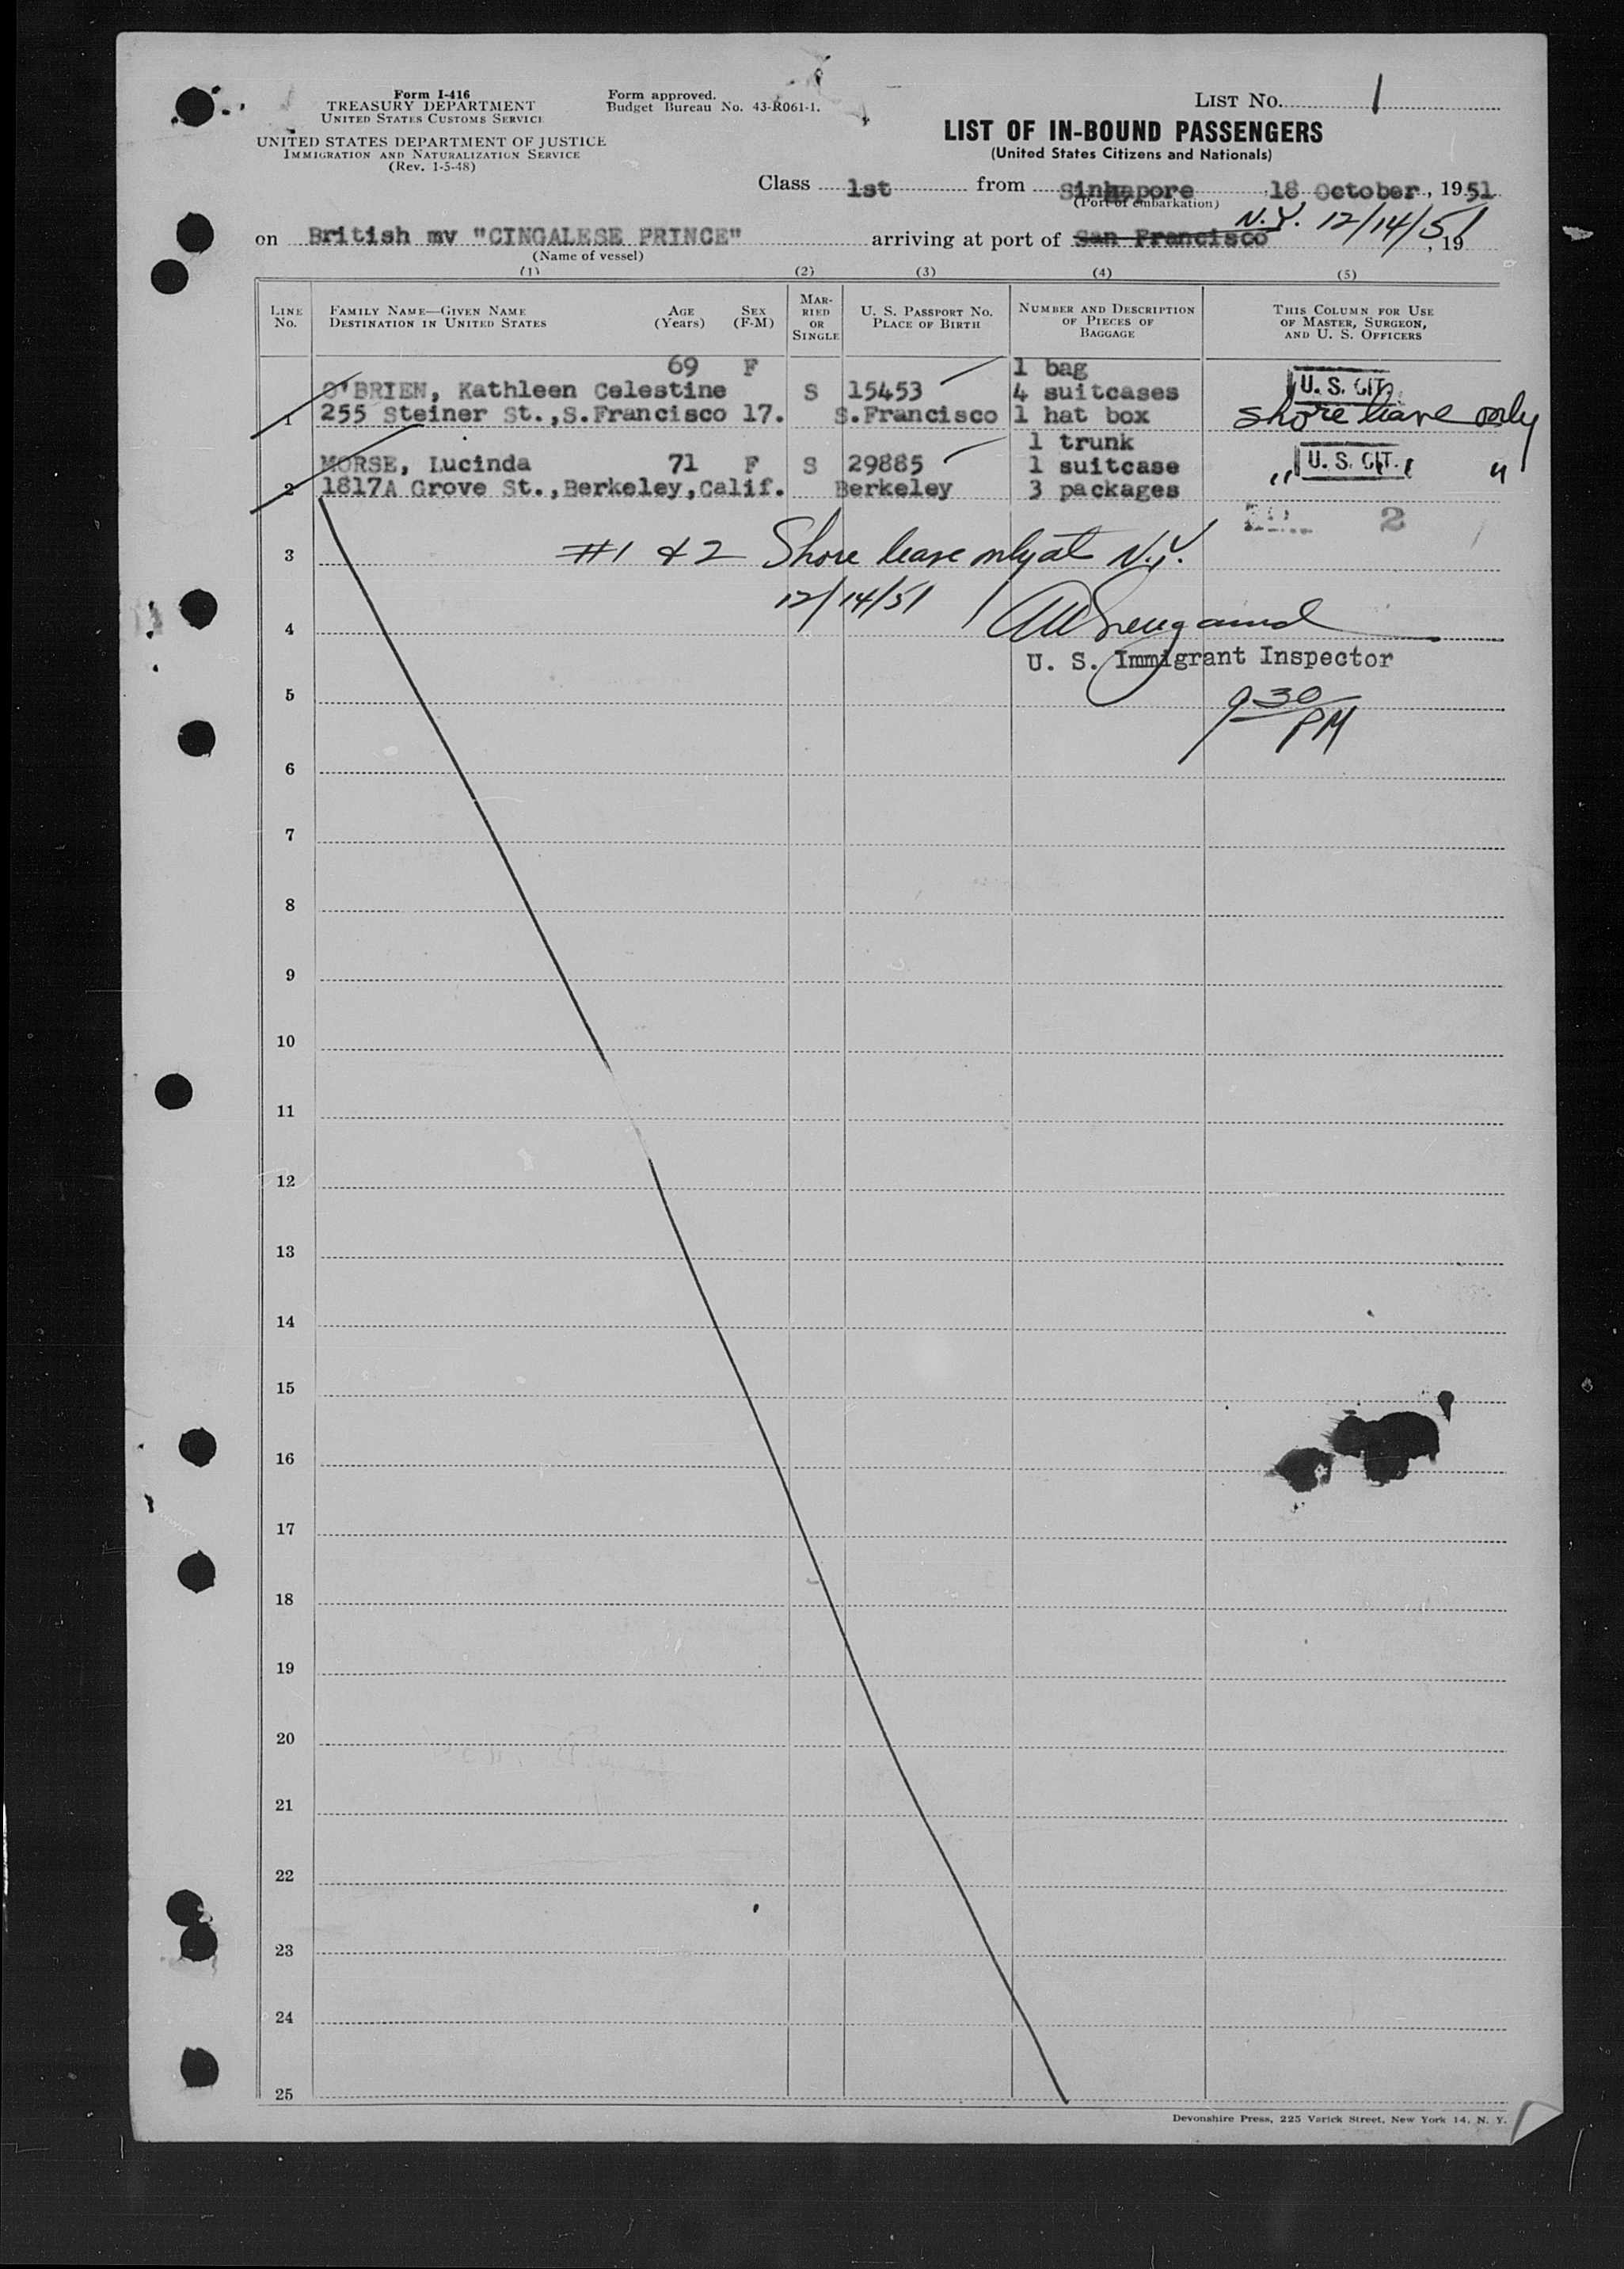 Form I-416
TREASURY DEPARTMENT
UNITED STATES CUSTOMS SERVICE
UNITED STATES DEPARTMENT OF JUSTICE
IMMIGRATION AND NATURALIZATION SERVICE
(Rev. 1-5-48)
Form approved.
Budget Bureau No. 43-R061-1.
LIST NO. 1
LIST OF IN-BOUND PASSENGERS
(United States Citizens and Nationals)
Class 1st from Singapore 18 October, 1951
(Port of embarkation)
N.Y. 12/14/51
on British mv "CINGALESE PRINCE" arriving at port of San Francisco, 19
(Name of vessel)
(1) (2) (3) (4) (5)
LINE NO. FAMILY NAME—GIVEN NAME DESTINATION IN UNITED STATES AGE (Years) SEX (F-M) MARRIED OR SINGLE U. S. PASSPORT NO. PLACE OF BIRTH NUMBER AND DESCRIPTION OF PIECES OF BAGGAGE THIS COLUMN FOR USE OF MASTER, SURGEON, AND U. S. OFFICERS
69 F 1 bag
O'BRIEN, Kathleen Celestine S 15453 4 suitcases U. S. CIT.
1 255 Steiner St.,S.Francisco 17. S.Francisco 1 hat box shore leave only
1 trunk
MORSE, Lucinda 71 F S 29885 1 suitcase " U. S. CIT. "
2 1817A Grove St.,Berkeley,Calif. Berkeley 3 packages
2
3 #1 & 2 Shore leave only at N.Y.
12/14/51
4
U. S. Immigrant Inspector
5
9 30 PM
6
7
8
9
10
11
12
13
14
15
16
17
18
19
20
21
22
23
24
25
Devonshire Press, 225 Varick Street, New York 14, N. Y.